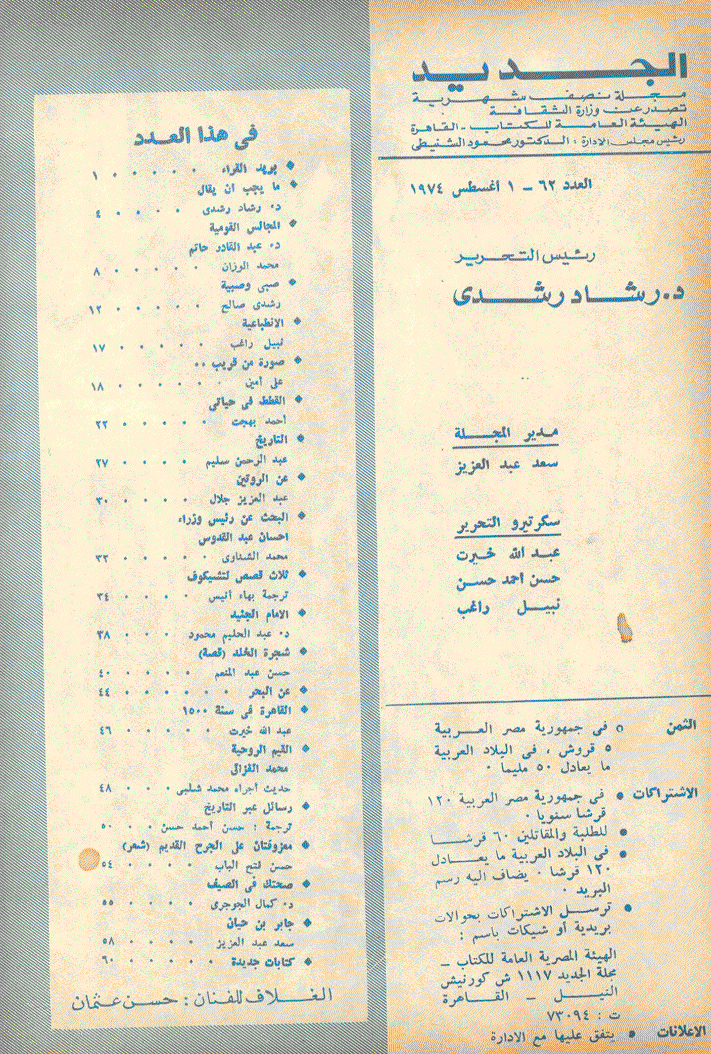 الجديد
مجلة نصف شهرية
تصدر عن وزارة الثقافة
الهيئة العامة للكتاب - القاهرة
رئيس مجلس الادارة : الدكتور محمود الشنيطى
العدد ٦٢ - ١ أغسطس ١٩٧٤
رئيس التحرير
د. رشاد رشدى
مدير المجلة
سعد عبد العزيز
سكرتيرو التحرير
عبد الله خيرت
حسن احمد حسن
نبيل راغب
الثمن
o فى جمهورية مصر العربية
٥ قروش ، فى البلاد العربية
ما يعادل ٥٠ مليما ٠
الاشتراكات
● فى جمهورية مصر العربية ١٢٠
قرشا سنويا ٠
● للطلبة والمقاتلين ٦٠ قرشا
● فى البلاد العربية ما يعادل
١٢٠ قرشا ٠ يضاف اليه رسم
البريد ٠
● ترسل الاشتراكات بحوالات
بريدية أو شيكات باسم :
الهيئة المصرية العامة للكتاب -
مجلة الجديد ١١١٧ ش كورنيش
النيل - القاهرة
ت : ٧٣٠٩٤
الاعلانات ● يتفق عليها مع الادارة
فى هذا العدد
◆ بريد القراء ٠ ٠ ٠ ٠ ٠ ١
◆ ما يجب ان يقال
د٠ رشاد رشدى ٠ ٠ ٠ ٠ ٤
◆ المجالس القومية
د٠ عبد القادر حاتم
محمد الوزان ٠ ٠ ٠ ٠ ٠ ٨
◆ صبى وصبية
رشدى صالح ٠ ٠ ٠ ٠ ٠ ١٢
◆ الانطباعية
نبيل راغب ٠ ٠ ٠ ٠ ٠ ١٧
◆ صورة من قريب ٠٠
على أمين ٠ ٠ ٠ ٠ ٠ ٠ ١٨
◆ القطط فى حياتى
أحمد بهجت ٠ ٠ ٠ ٠ ٠ ٢٢
◆ التاريخ
عبد الرحمن سليم ٠ ٠ ٠ ٠ ٢٧
◆ عن الروتين
عبد العزيز جلال ٠ ٠ ٠ ٠ ٣٠
◆ البحث عن رئيس وزراء
احسان عبد القدوس
محمد الشناوى ٠ ٠ ٠ ٠ ٠ ٣٢
◆ ثلاث قصص لتشيكوف
ترجمة بهاء أنيس ٠ ٠ ٠ ٠ ٣٤
◆ الامام الجنيد
د٠ عبد الحليم محمود ٠ ٠ ٠ ٣٨
◆ شجرة الخلد (قصة)
حسن عبد المنعم ٠ ٠ ٠ ٠ ٤٠
◆ عن البحر ٠ ٠ ٠ ٠ ٠ ٠ ٤٤
◆ القاهرة فى سنة ١٥٠٠
عبد الله خيرت ٠ ٠ ٠ ٠ ٠ ٤٦
◆ القيم الروحية
محمد الغزالى
حديث أجراه محمد شلبى ٠ ٠ ٠ ٤٨
◆ رسائل عبر التاريخ
ترجمة : حسن أحمد حسن ٠ ٠ ٥٠
◆ معزوفتان على الجرح القديم (شعر)
حسن فتح الباب ٠ ٠ ٠ ٠ ٥٤
◆ صحتك فى الصيف
د٠ كمال الجوجرى ٠ ٠ ٠ ٠ ٥٥
◆ جابر بن حيان
سعد عبد العزيز ٠ ٠ ٠ ٠ ٠ ٥٨
◆ كتابات جديدة ٠ ٠ ٠ ٠ ٠ ٦٠
الغلاف للفنان : حسن عثمان